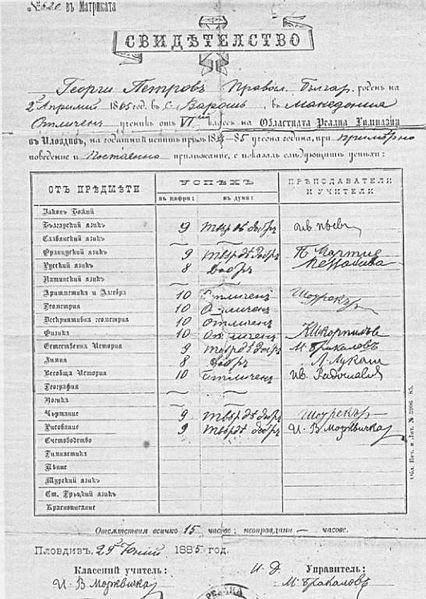 № 520 въ Матриката
СВИДѢТЕЛСТВО
Георги Петровъ Правосл. Бълг., роденъ на
2 Априлий 1865 год. въ с. Варошь, въ Македония
Отличенъ ученикъ отъ VI классъ на Областната Реална Гимназия
въ Пловдивъ, на годишний испитъ прѣзъ 1884—85 учебна година, при примѣрно
поведение и постоянно прилѣжание, е показалъ слѣдующитѣ успѣхи:
ОТЪ ПРѢДМЕТИ
УСПѢХЪ
ПРѢПОДАВАТЕЛИ И УЧИТЕЛИ
въ цифри: въ думи:
Законъ Божий
Българский языкъ 9 твърдѣ добръ
Славянский языкъ
Французский языкъ 9 твърдѣ добръ
Русский языкъ 8 Добръ
Латинский языкъ
Аритметика и Алгебра 10 Отличенъ Шоурекъ
Геометрия 10 Отличенъ
Дескриптивна геометрия 10 Отличенъ
Физика 10 Отличенъ
Естествена История 9 твърдѣ добръ М. Бракаловъ
Химия 8 Добръ
Всеобща История 10 Отличенъ
География
Логика
Чъртание 9 твърдѣ добръ Шоурекъ
Рисование 9 твърдѣ добръ И. В. Мърквичка
Счетоводство
Гимнастика
Пѣние
Турский языкъ
Ст. Гръцкий языкъ
Краснописание
Отсѫтствия всичко 15 часове; неоправдани — часове.
Пловдивъ, 29 Юний 1885 год.
Классний учитель: И. Д. Управитель:
И. В. Мърквичка М. Бракаловъ